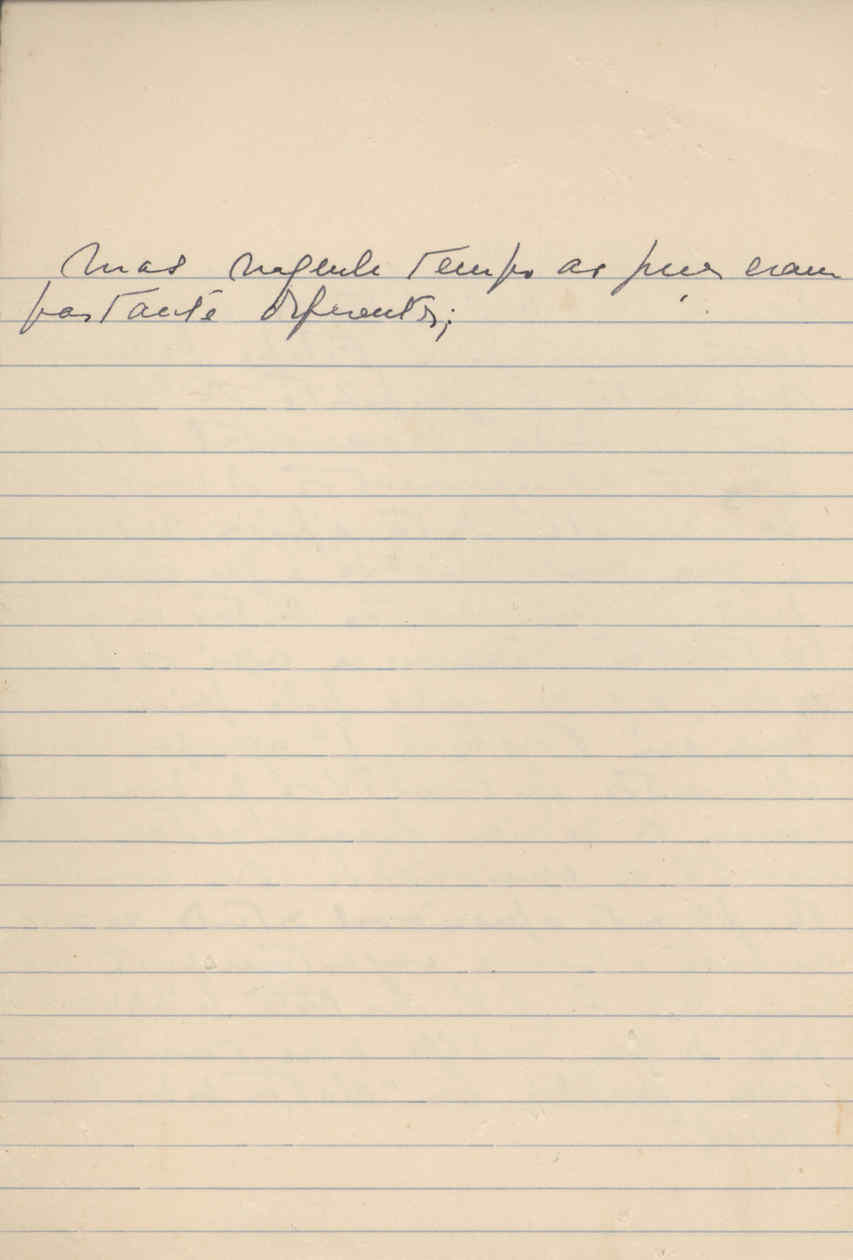 mas naquele tempo as eram
bastante diferentes;